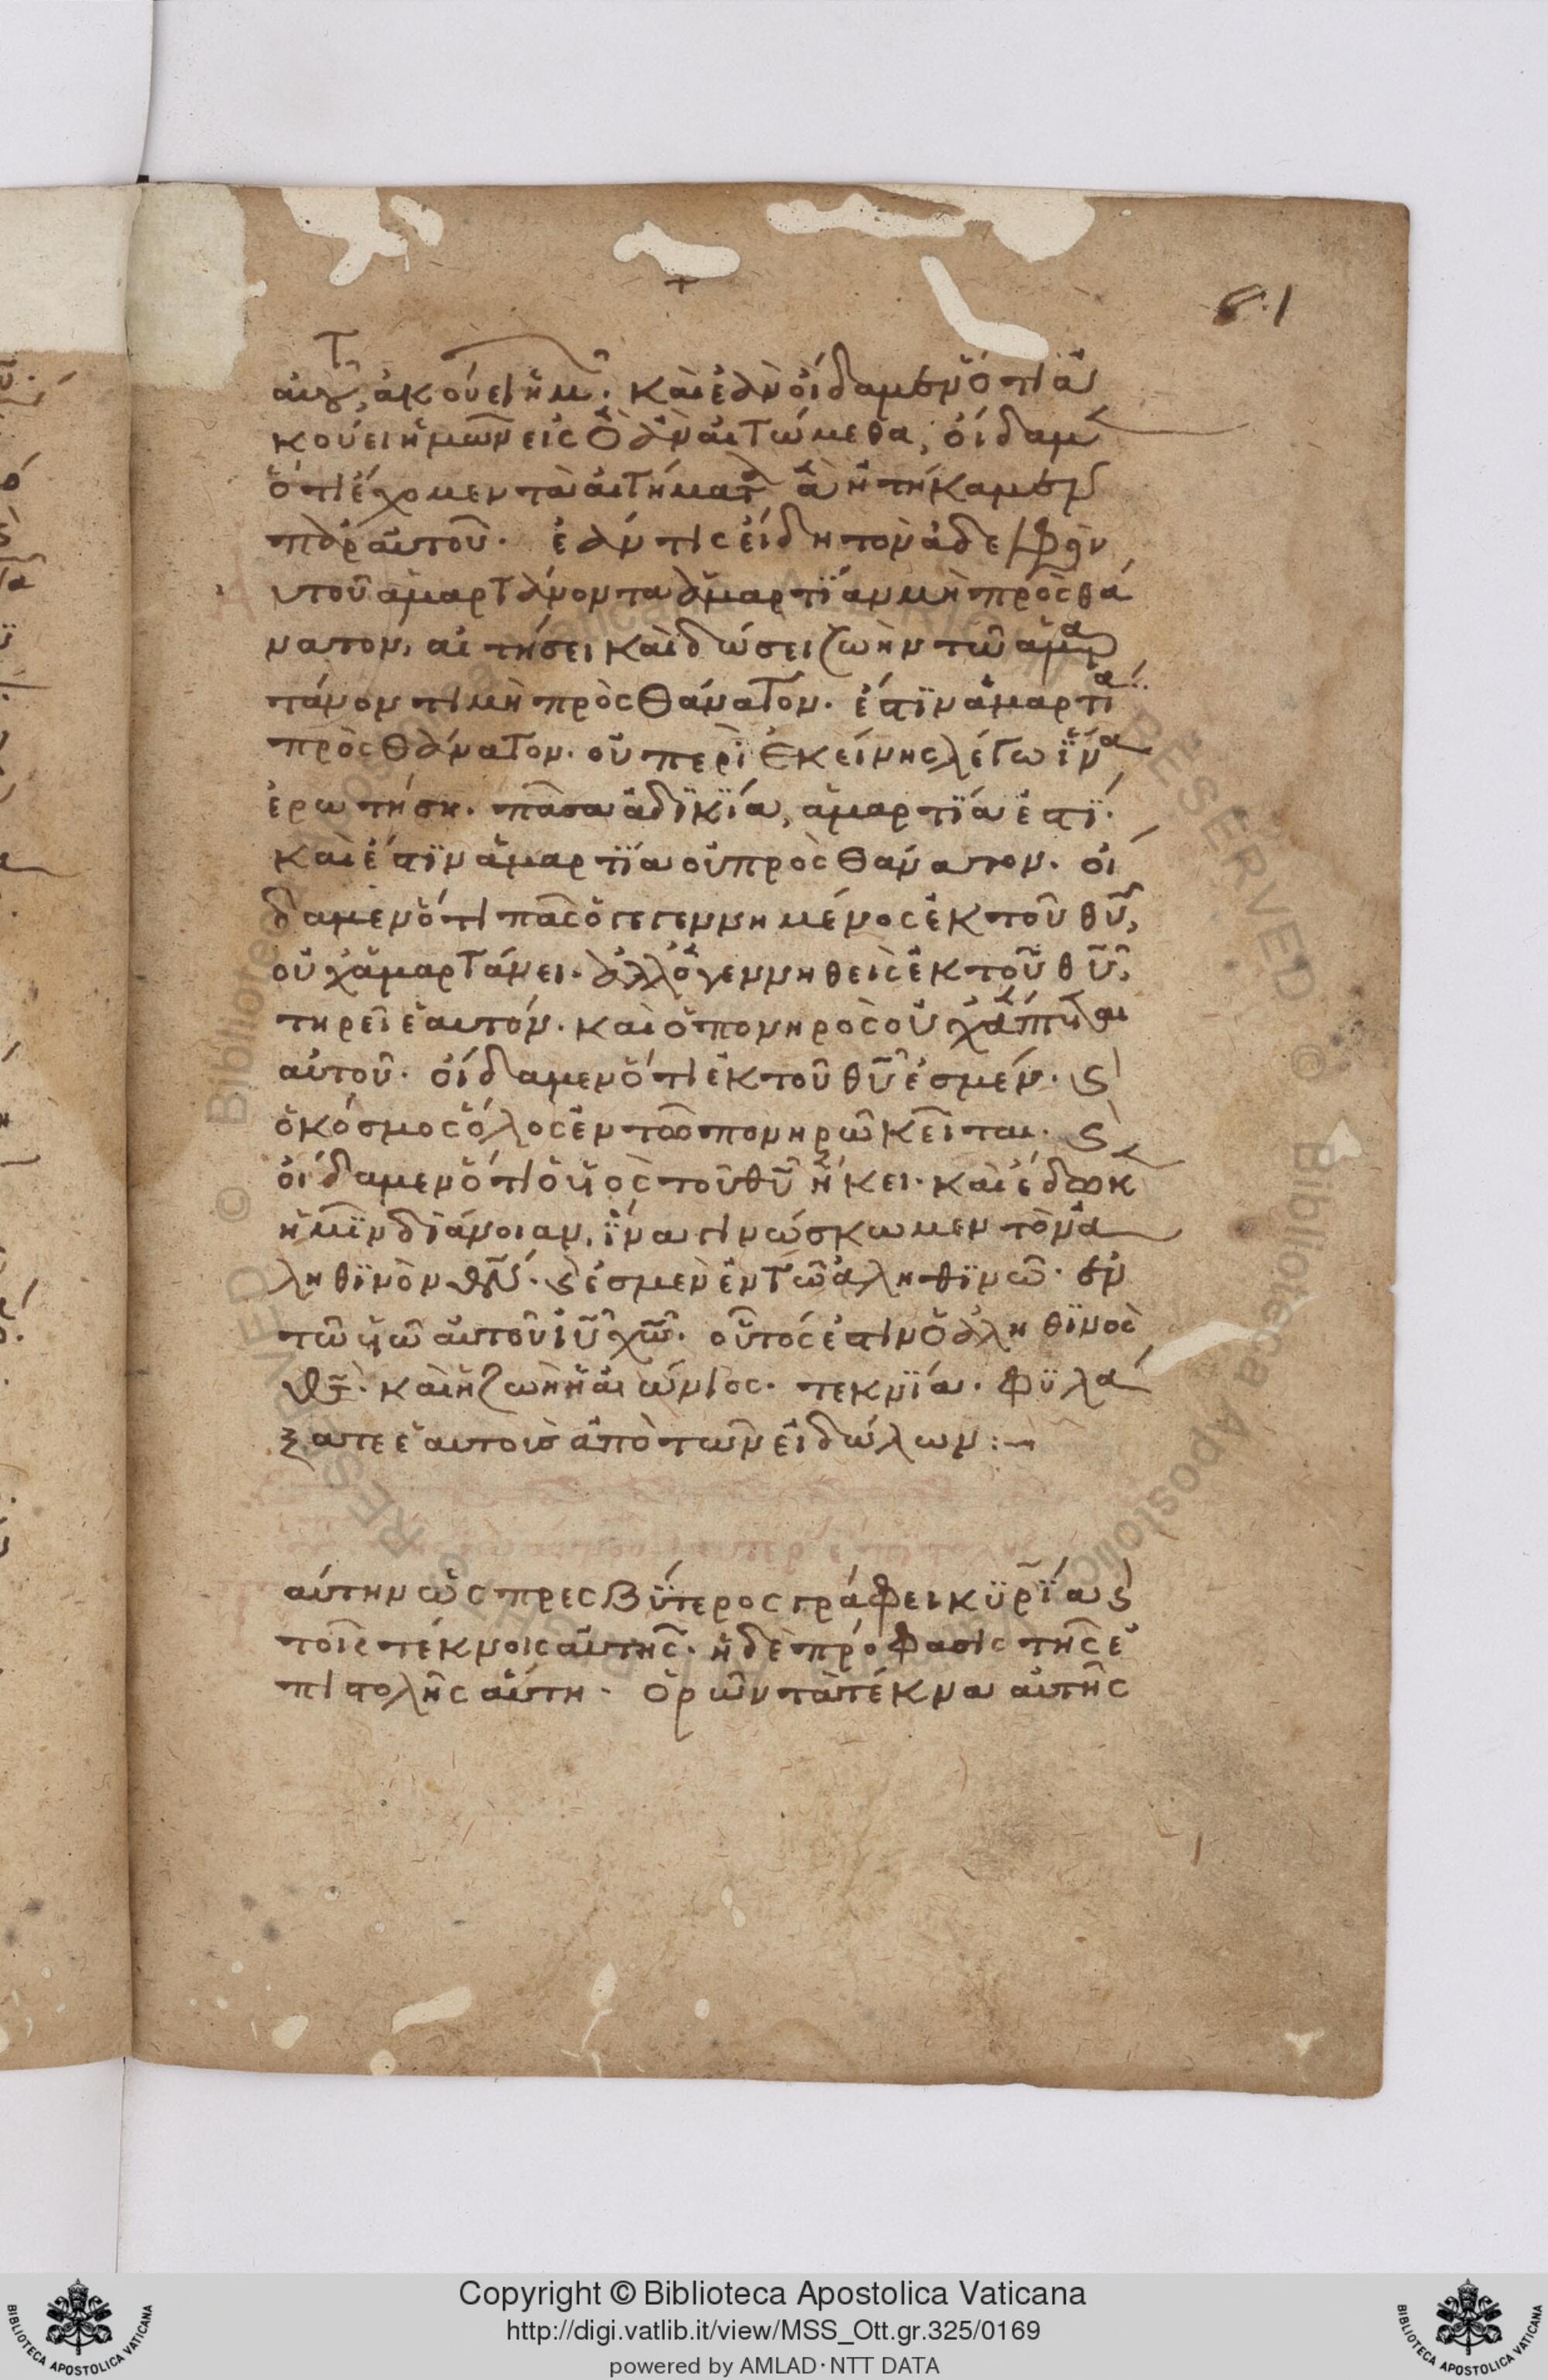 +
81
αυτοῦ, ἀκούει ἡμῶν. καὶ ἐὰν οἴδαμεν ὅτι ἀ
κούει ἡμῶν εἰς ὃ ἐὰν αἰτώμεθα, οἴδαμεν
ὅτι ἔχομεν τὰ αἰτήματα ἃ ἠτήκαμεν
παρ αὐτοῦ. ἐάν τις εἴδη τὸν ἀδελφὸν
αυτοῦ ἁμαρτάνοντα ἁμαρτΐαν μὴ πρὸς θά
νατον, αἰτήσει καὶ δώσει ζωὴν τῶ ἁμαρ
τάνοντι μὴ πρὸς θάνατον. ἐστϊν ἁμαρτία
πρὸς θάνατον. οὐ περὶ ἐκείνης λέγω ἵνα
ἐρωτήση. πᾶσα ἀδϊκΐα, ἁμαρτΐα ἐστΐ.
καὶ ἔστϊν ἁμαρτΐα οὐ πρὸς θάνατον. οἴ
δαμεν ὅτι πᾶς ὁ γεγεννημένος ἐκ τοῦ θυ,
οὐχ ἁμαρτάνει. ἀλλ ὁ γεννηθεὶς ἐκ τοῦ θυ,
τηρεῖ ἑαυτόν. καὶ ὁ πονηρὸς οὐχ ἅπτεται
αὐτοῦ. οἴδαμεν ὅτι ἐκ τοῦ θυ ἐσμέν. ϗ
ὁ κόσμος ὅλος ἐν τῶ πονηρῶ κεῖται. ϗ
οἴδαμεν ὅτι ὁ υἱὸς τοῦ θυ ἥκει. καὶ ἔδωκεν
ἡμῖν διάνοιαν, ἵνα γινώσκωμεν τὸν ἀ
ληθϊνὸν θν. ϗ ἐσμὲν ἐν τῶ ἀληθϊνῶ. ἐν
τῶ υἱῶ αὐτοῦ ιυ χω. οὗτός ἐστιν ὁ ἀληθϊνὸς
θς. καὶ ἡ ζωὴ ἡ αἰώνιος. τεκνΐα. φϋλά
ξατε ἑαυτοὺς ἀπὸ τῶν εἰδώλων:~
αύτην ὡς πρεσβΰτερος γράφει κϋρΐα ϗ
τοῖς τέκνοις αὐτῆς. ἡ δὲ πρόφασις τῆς ἐ
πιστολῆς αὕτη. ὁρῶν τὰ τέκνα αὐτῆς
Copyright © Biblioteca Apostolica Vaticana
http://digi.vatlib.it/view/MSS_Ott.gr.325/0169
powered by AMLAD·NTT DATA